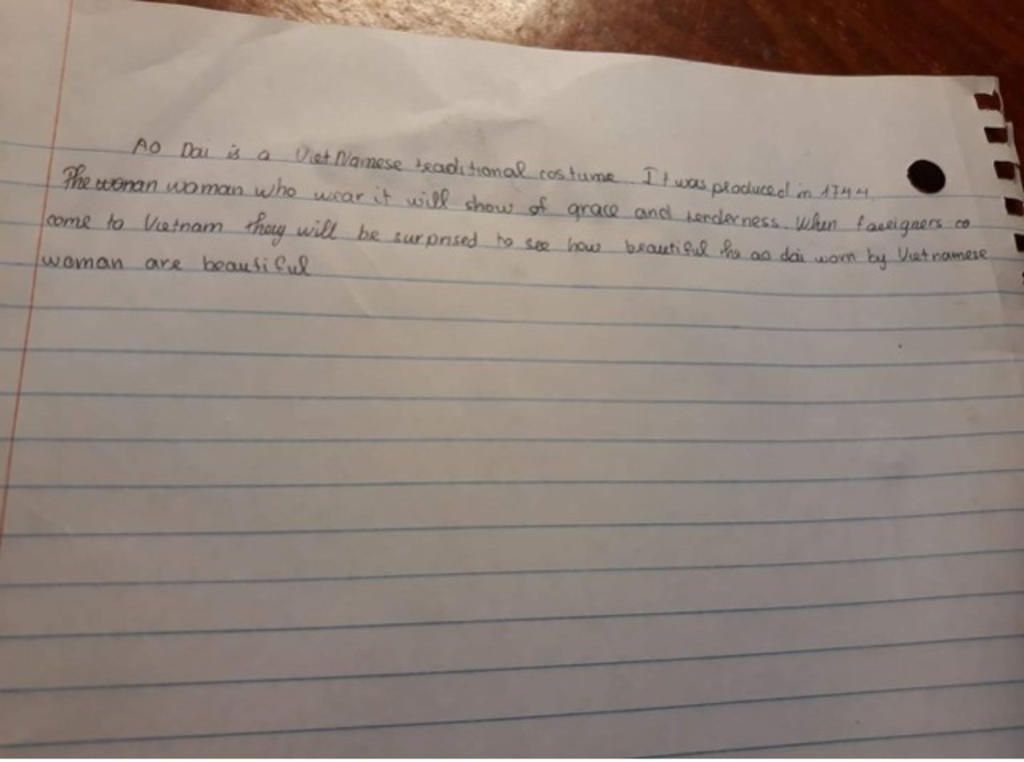 Ao Dai is a VietNamese traditional costume. It was produced in 1744.
The wonan woman who wear it will show of grace and tenderness. When foreigners co
come to Vietnam they will be surprised to see how beautiful the ao dai worn by Vietnamese
woman are beautiful